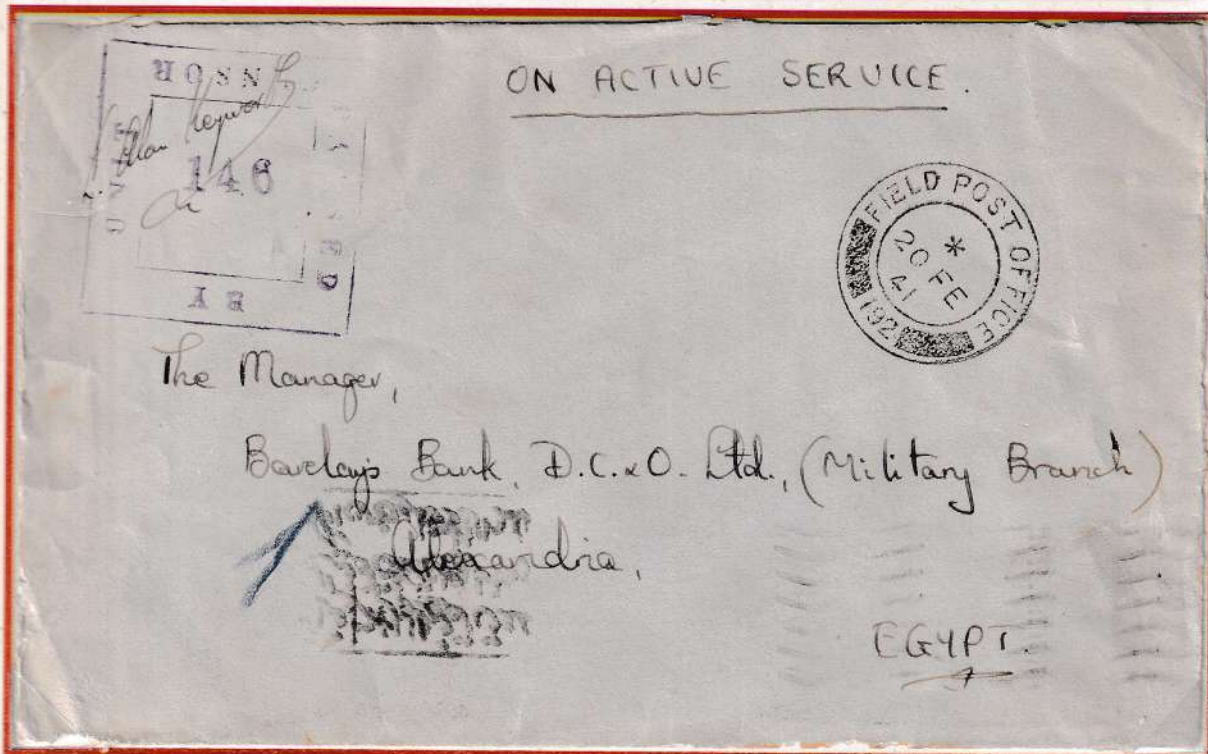 ON ACTIVE SERVICE.
146
BY
FIELD POST OFFICE
*
20 FE
41
192
The Manager,
Barclays Bank, D.C.&O. Ltd., (Military Branch)
Alexandria,
EGYPT.